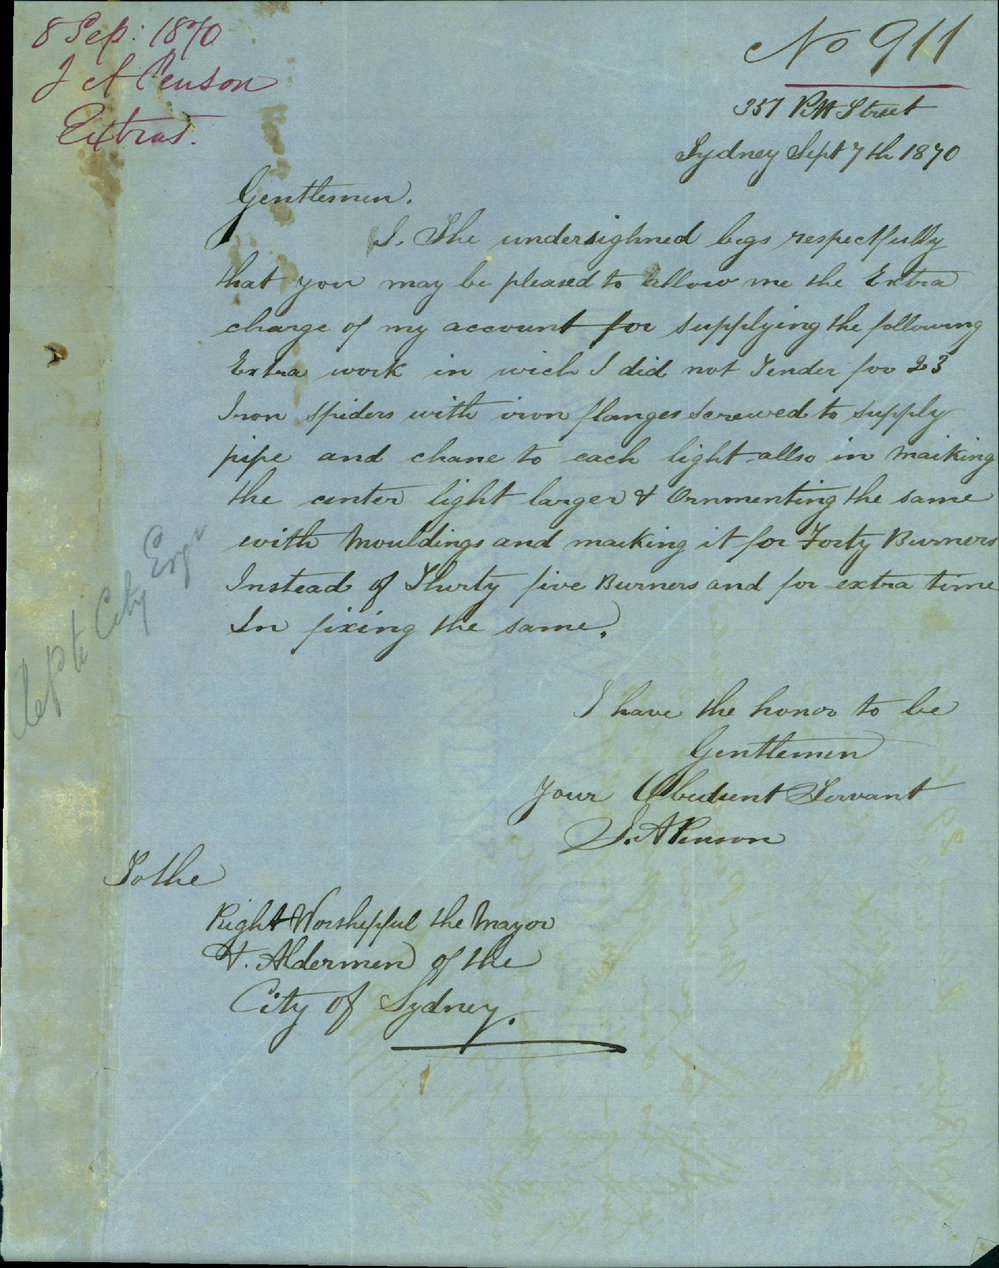 8 Sep: 1870
J A Penson
Extras.
No 911
357 Pitt Street
Sydney Sept 7th 1870
Gentlemen.
I. The undersighned begs respectfully
that you may be pleased to allow me the Extra
charge of my account for supplying the following
Extra work in wich I did not Tender for 23
Iron spiders with iron flanges screwed to supply
pipe and chane to each light allso in maiking
the center light larger & Ornmenting the same
with Mouldings and maiking it for Forty Burners
Instead of Thirty five Burners and for extra time
In fixing the same.
I have the honor to be
Gentlemen
Your Obedient Servant
J. A Penson
To the
Right Worshepful the Mayor
&. Aldermen of the
City of Sydney.
City Engr